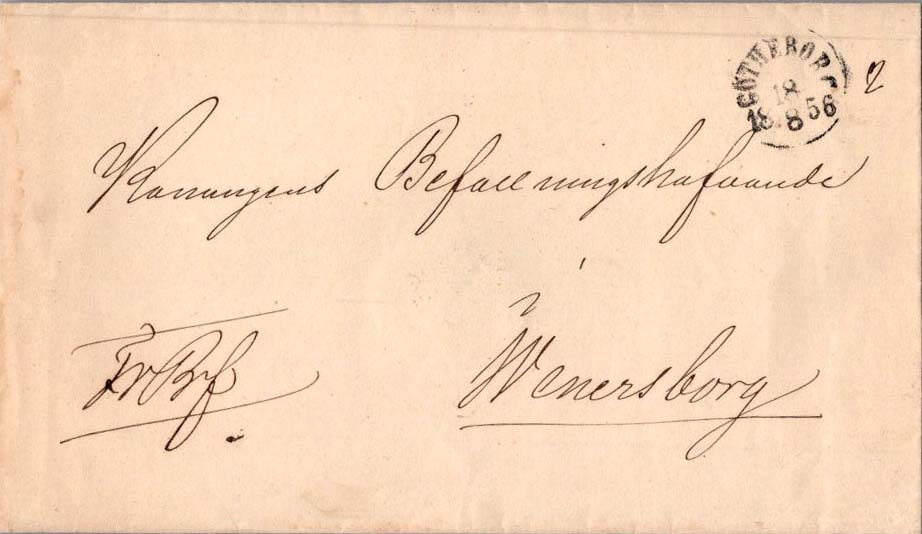 GÖTHEBORG
18
18 8 56
2
Konungens Befallningshafvande
i
Wenersborg
Fr Brf